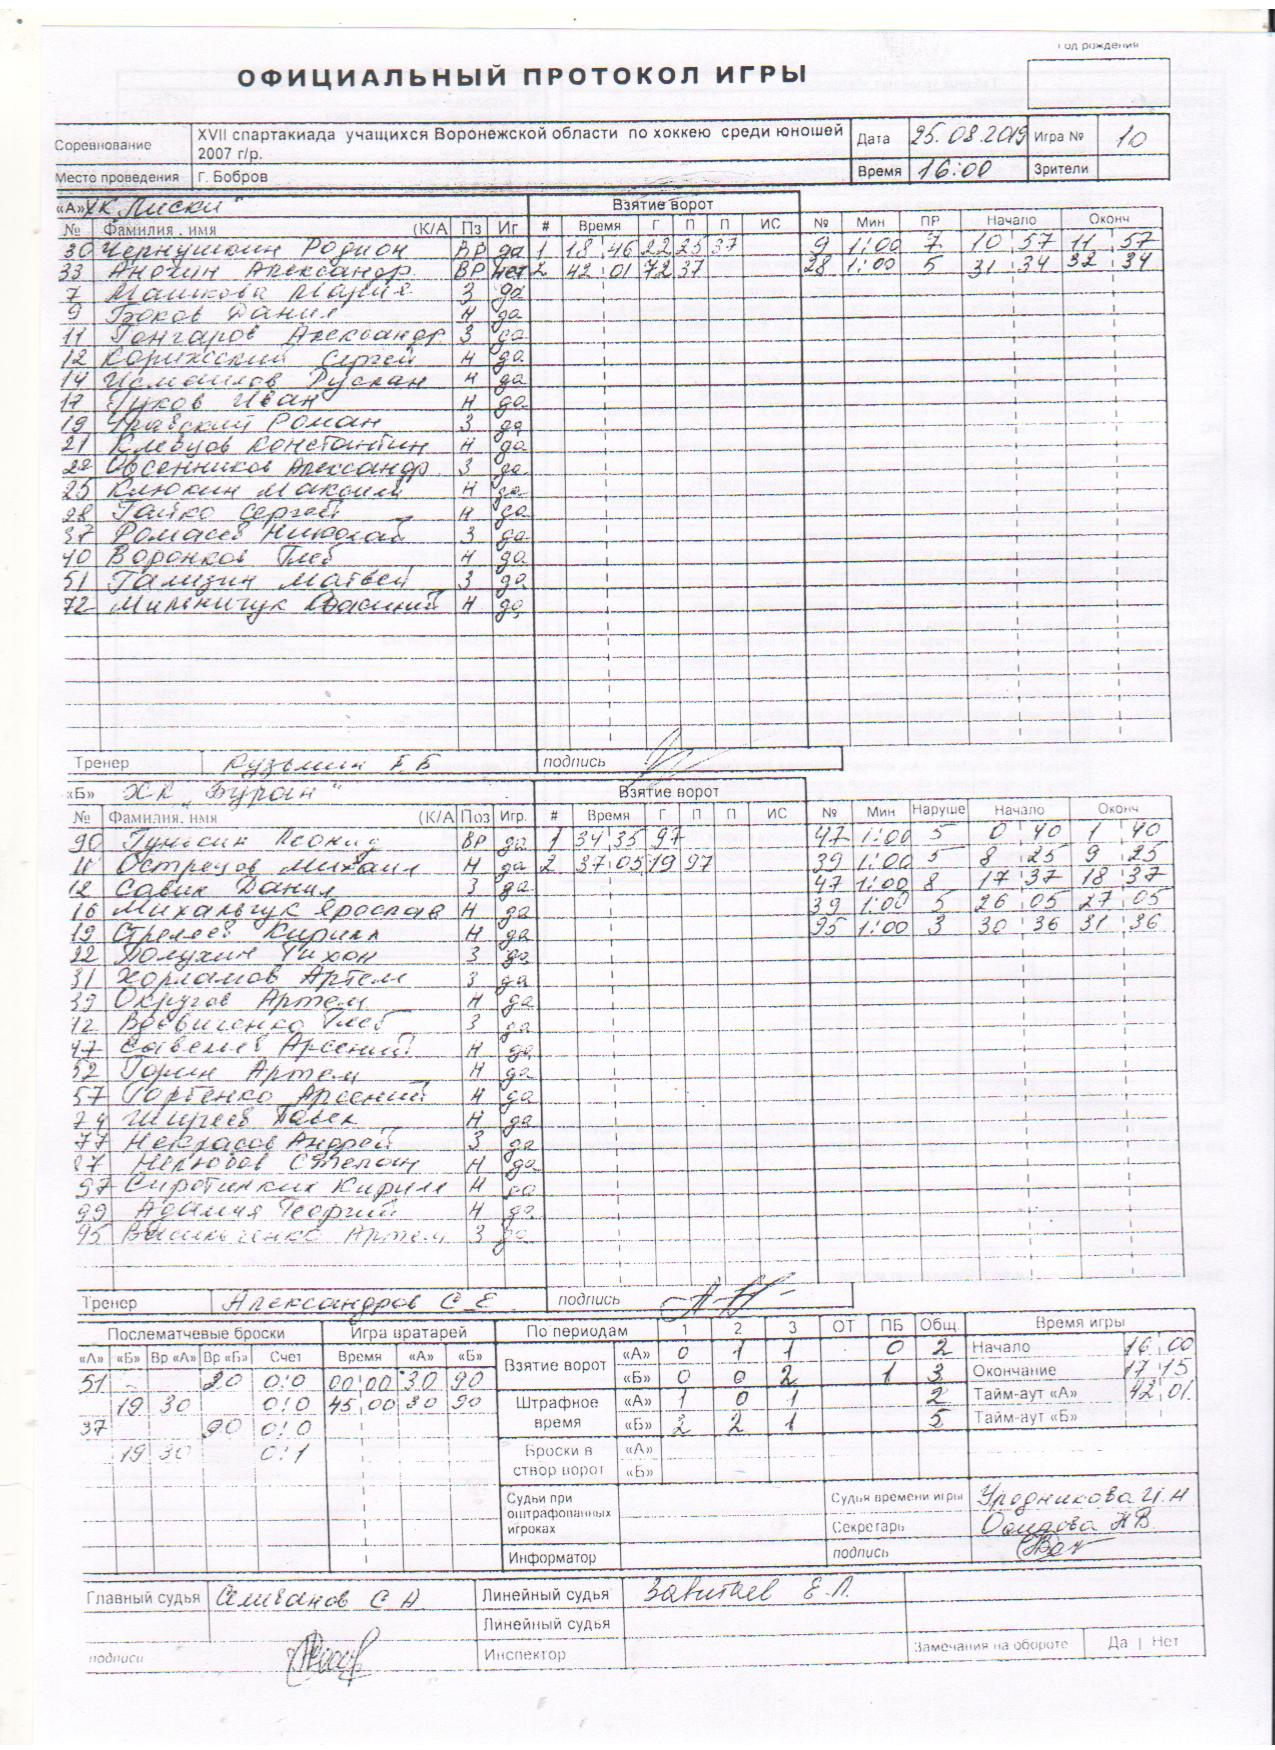 Год рождения
ОФИЦИАЛЬНЫЙ ПРОТОКОЛ ИГРЫ
Соревнование XVII спартакиада учащихся Воронежской области по хоккею среди юношей 2007 г/р. Дата 25.08.2019 Игра № 10
Место проведения Г. Бобров Время 16:00 Зрители
«А» ХК "Лиски" Взятие ворот
№ Фамилия . имя (К/А Пз Иг # Время Г П П ИС № Мин ПР Начало Оконч
30 Чернушкин Родион ВР да 1 18 46 22 25 37 9 1:00 7 10 57 11 57
33 Анохин Александр ВР нет 2 42 01 72 37 28 1:00 5 31 34 32 34
7 Машкова Мария З да
9 Боков Данил Н да
11 Гончаров Александр З да
12 Сергей Н да
14 Исмаилов Руслан Н да
17 Гуков Иван Н да
19 Роман З да
21 Клевцов Константин Н да
22 Овсенников Александр З да
25 Клюкин Максим Н да
28 Гайко Сергей Н да
37 Ромасев Николай З да
40 Воронков Глеб Н да
51 Гализин Матвей З да
72 Мильничук Н да
Тренер Кузьмин Е.Б подпись
«Б» ХК "Буран" Взятие ворот
№ Фамилия. имя (К/А Поз Игр. # Время Г П П ИС № Мин Наруше Начало Оконч
90 Леонид ВР да 1 34 35 97 47 1:00 5 0 40 1 40
11 Острецов Михаил Н да 2 37 05 19 97 39 1:00 5 8 25 9 25
12 Савин Данил З да 47 1:00 8 17 37 18 37
16 Михальчук Ярослав Н да 39 1:00 5 26 05 27 05
19 Стрелев Кирилл Н да 95 1:00 3 30 36 31 36
22 Полухин Тихон З да
31 Харламов Артем З да
39 Округов Артем Н да
42 Вдовиченко Глеб З да
47 Савельев Арсений Н да
52 Горин Артем Н да
57 Горбенко Арсений Н да
74 Павел Н да
77 Некрасов Андрей З да
87 Нелюбов Степан Н да
97 Сиротинкин Кирилл Н да
99 Адамия Георгий Н да
95 Васильченко Артем З да
Тренер Александров С Е подпись
Послематчевые броски Игра вратарей По периодам 1 2 3 ОТ ПБ Общ. Время игры
«А» «Б» Вр «А» Вр «Б» Счет Время «А» «Б» Взятие ворот «А» 0 1 1 0 2 Начало 16 00
51 - 90 0:0 00 00 30 90 «Б» 0 0 2 1 3 Окончание 17 15
19 30 0:0 45 00 30 90 Штрафное время «А» 1 0 1 2 Тайм-аут «А» 42 01
37 90 0:0 «Б» 2 2 1 5 Тайм-аут «Б»
19 30 0:1 Броски в створ ворот «А»
«Б»
Судьи при оштрафованных игроках Судья времени игры Урядникова И.Н
Секретарь Н.В.
Информатор подпись
Главный судья Селиванов С А Линейный судья Завитаев Е.Л.
Линейный судья
подписи Инспектор Замечания на обороте Да | Нет